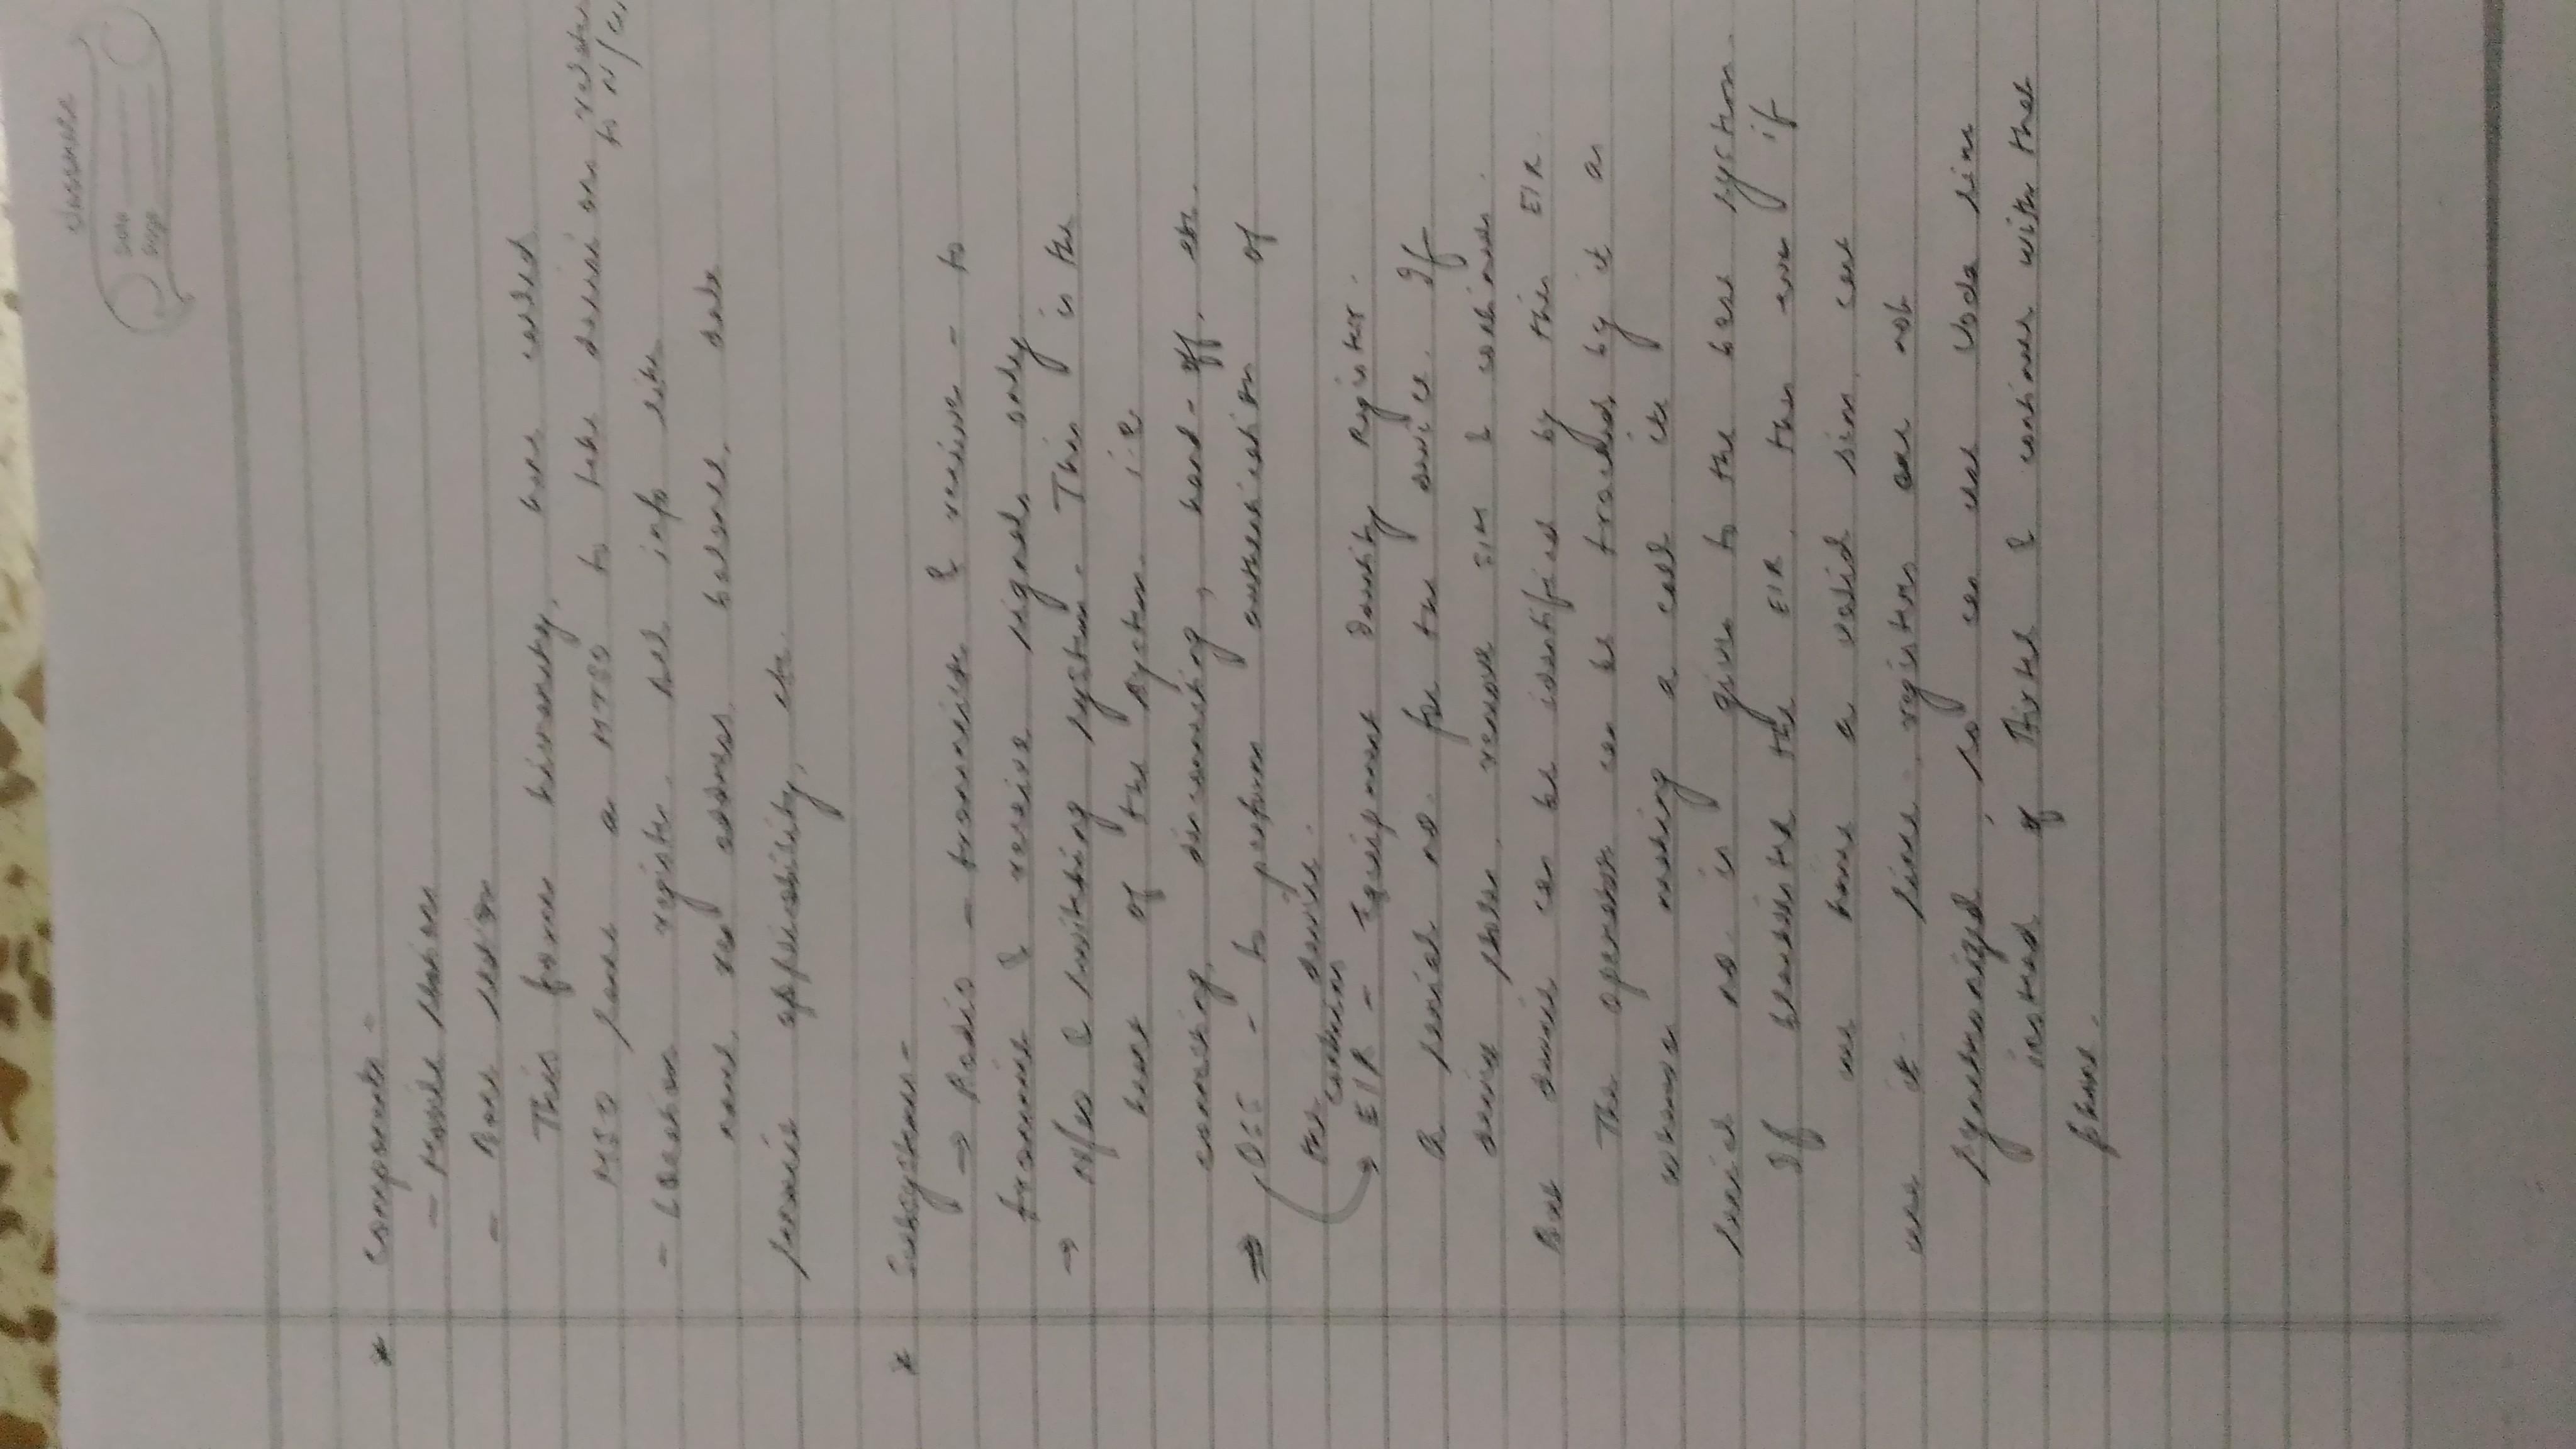 Classmate
Date
Page
* Components -
- Mobile stations
- Base station
This forms hierarchy, here called
MSO same as MTSO to take decisions related
to N/w
- Location register. All info like
name, address, balance, data
service applicability, etc.
* Subsystems -
→ Radio - transmits & receive - to
transmit & receive signals only
→ N/w & switching system. This is the
heart of the system i.e
connecting, disconnecting, hand-off, etc.
⇒ OSS - to perform authentication of
the device.
contains
→ EIR - Equipment Identity Register.
A serial no. for the device. If
device stolen, remove SIM & continues.
But device can be identified by this EIR.
The operator can be tracked by it as
whenever making a call its
serial no. is given to the base system.
If blacklisted the EIR, then even if
we have a valid sim, can't
use it. Since registers are not
synchronized, so can use Voda sim
instead of Airtel & continue with that
phone.